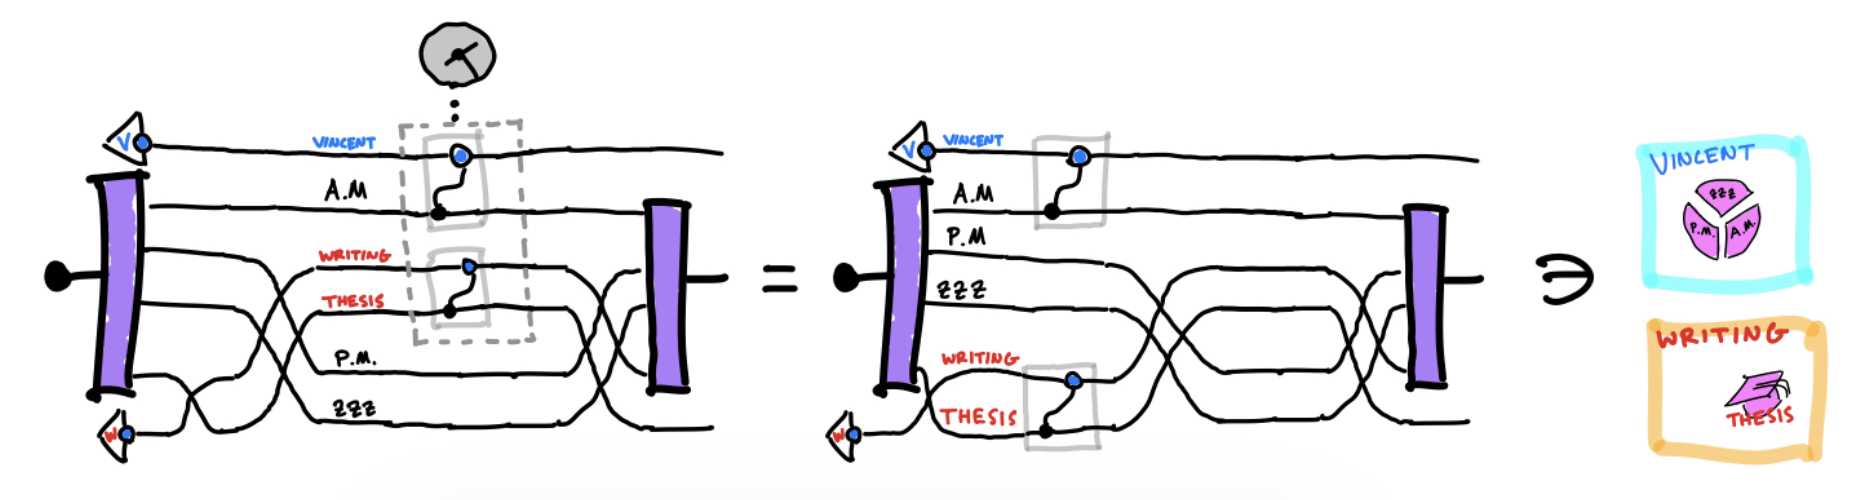 V
VINCENT
A.M
WRITING
THESIS
P.M.
ZZZ
W
=
V
VINCENT
A.M
P.M
ZZZ
WRITING
THESIS
W
∋
VINCENT
ZZZ
P.M. A.M.
WRITING
THESIS